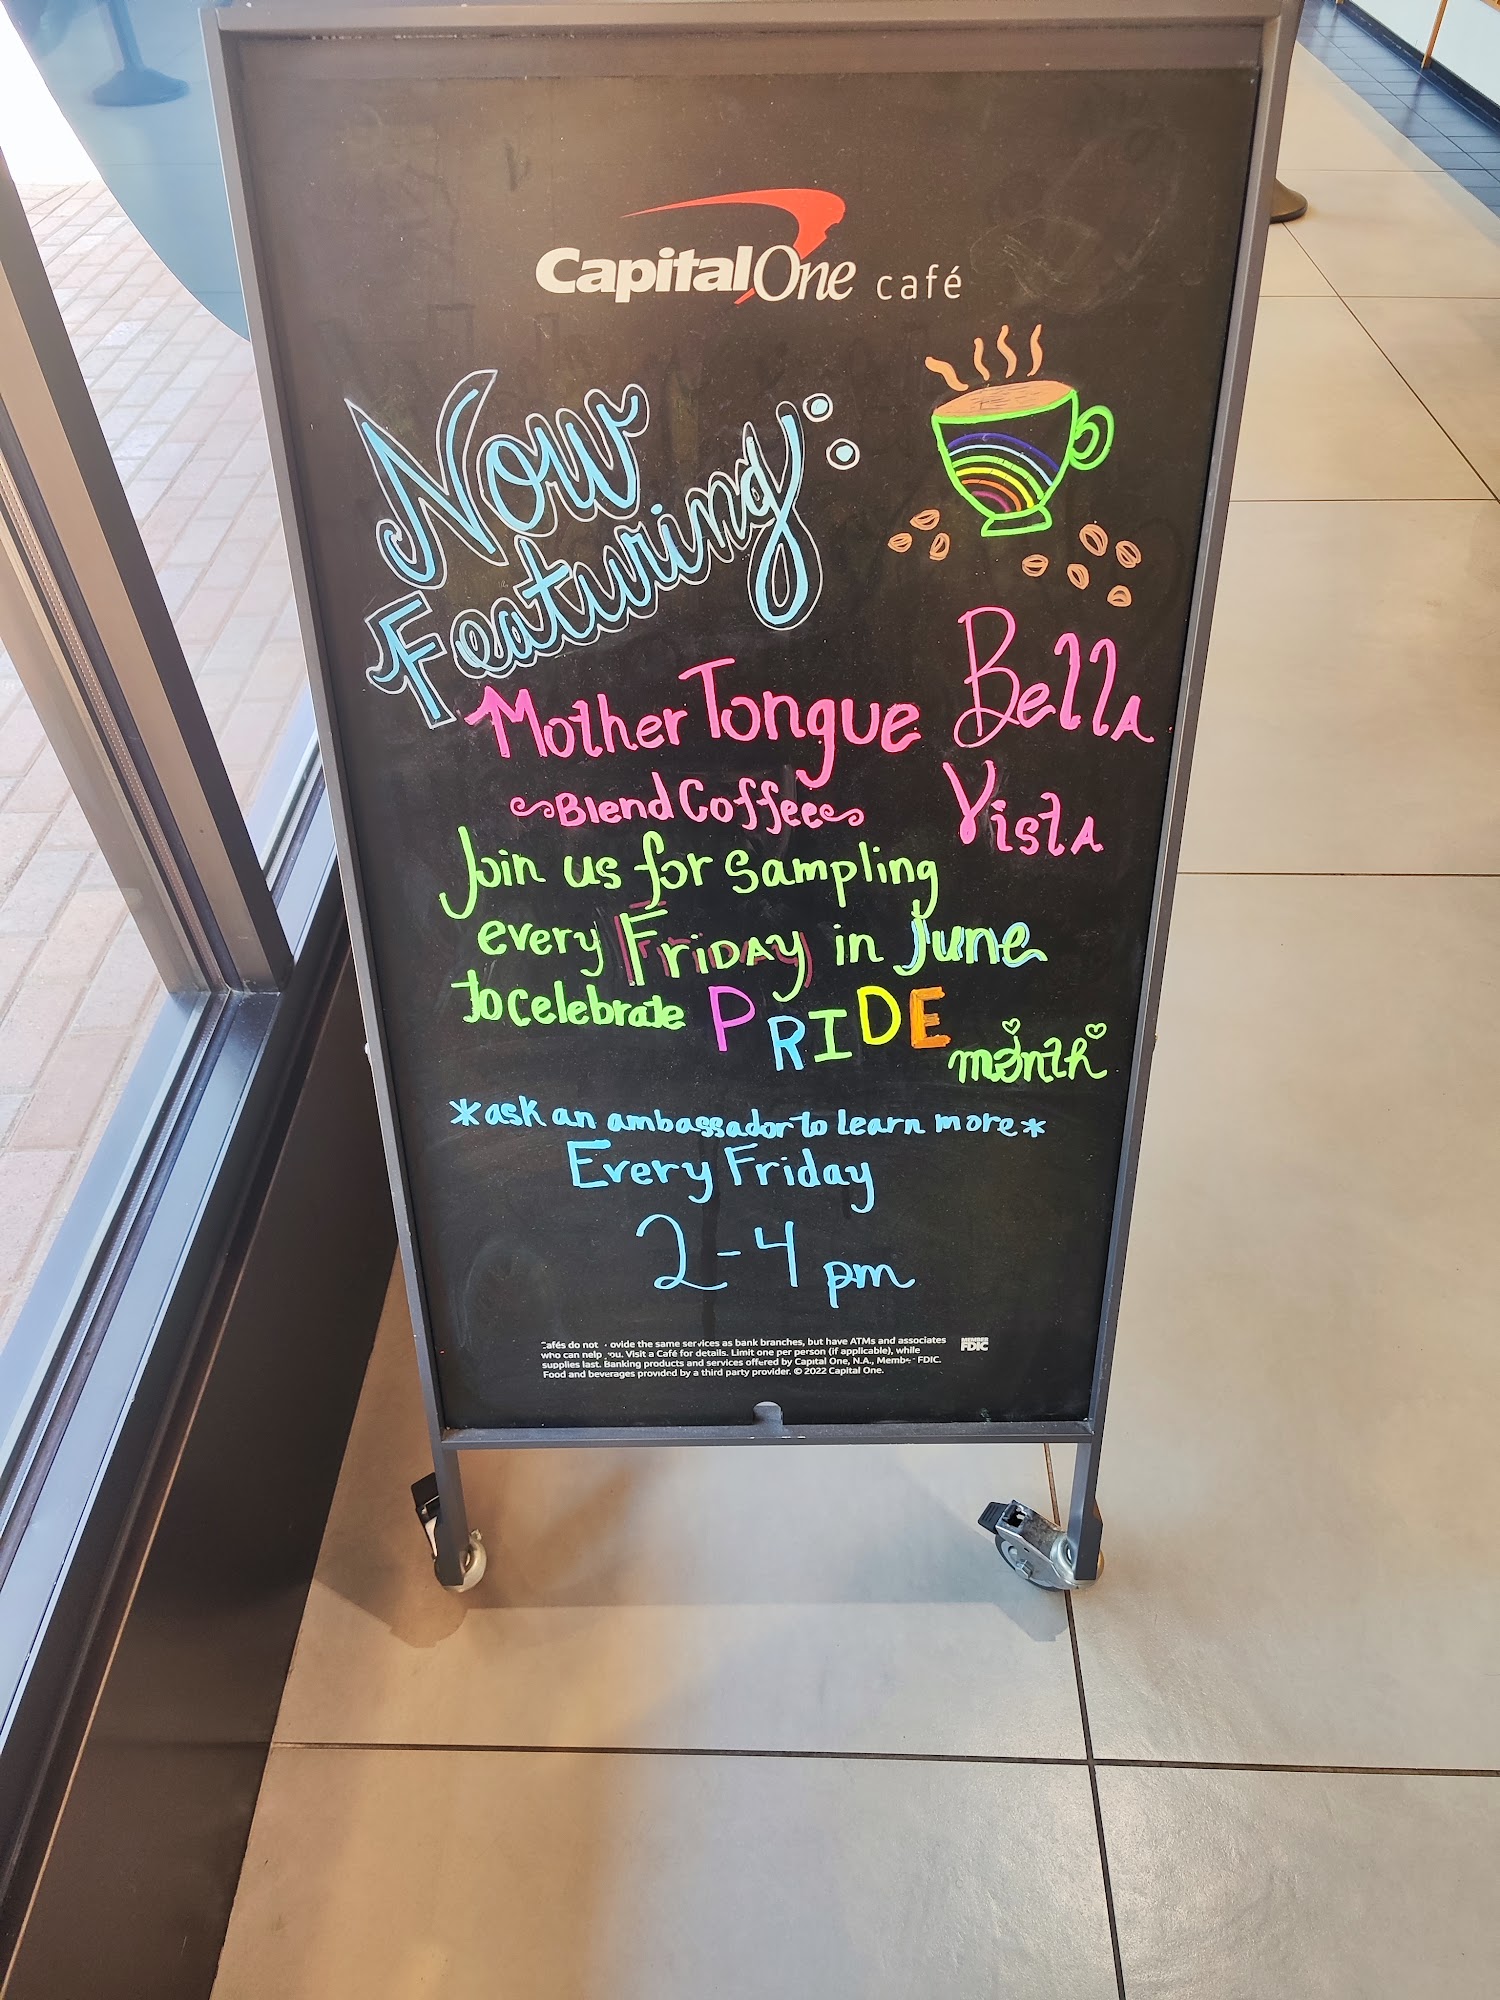 Capital One café
Now
Featuring:
Mother Tongue
Blend Coffee
Bella
Vista
Join us for sampling
every Friday in June
to celebrate PRIDE month
*ask an ambassador to learn more*
Every Friday
2-4 pm
Cafés do not provide the same services as bank branches, but have ATMs and associates
who can help you. Visit a Café for details. Limit one per person (if applicable), while
supplies last. Banking products and services offered by Capital One, N.A., Member FDIC.
Food and beverages provided by a third party provider. © 2022 Capital One.
MEMBER
FDIC